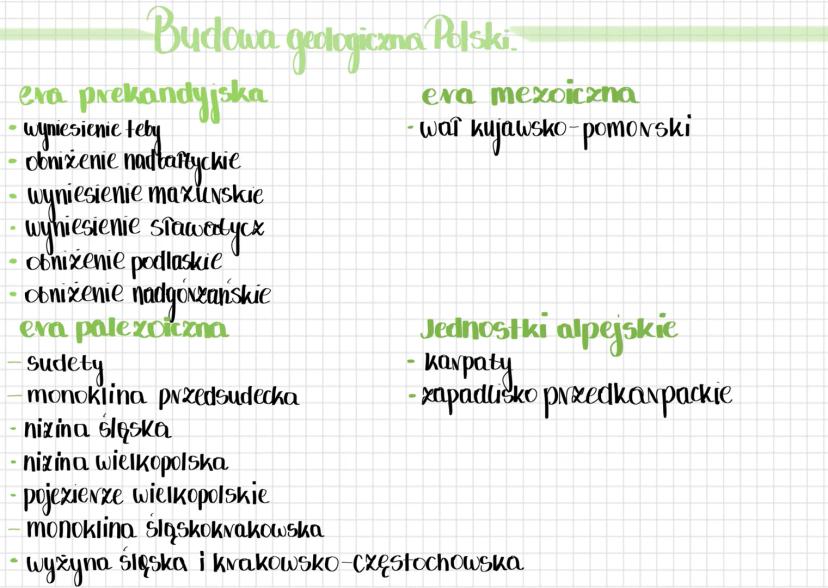 Budowa geologiczna Polski.
era prekandyjska
- wyniesienie łeby
- obniżenie nadbałtyckie
- wyniesienie mazurskie
- wyniesienie sławatycz
- obniżenie podlaskie
- obniżenie nadgórzańskie
era palezoiczna
- sudety
- monoklina przedsudecka
- nizina śląska
- nizina wielkopolska
- pojezierze wielkopolskie
- monoklina śląskokrakowska
- wyżyna śląska i krakowsko-częstochowska
era mezoiczna
- wał kujawsko-pomorski
Jednostki alpejskie
- karpaty
- zapadlisko przedkarpackie